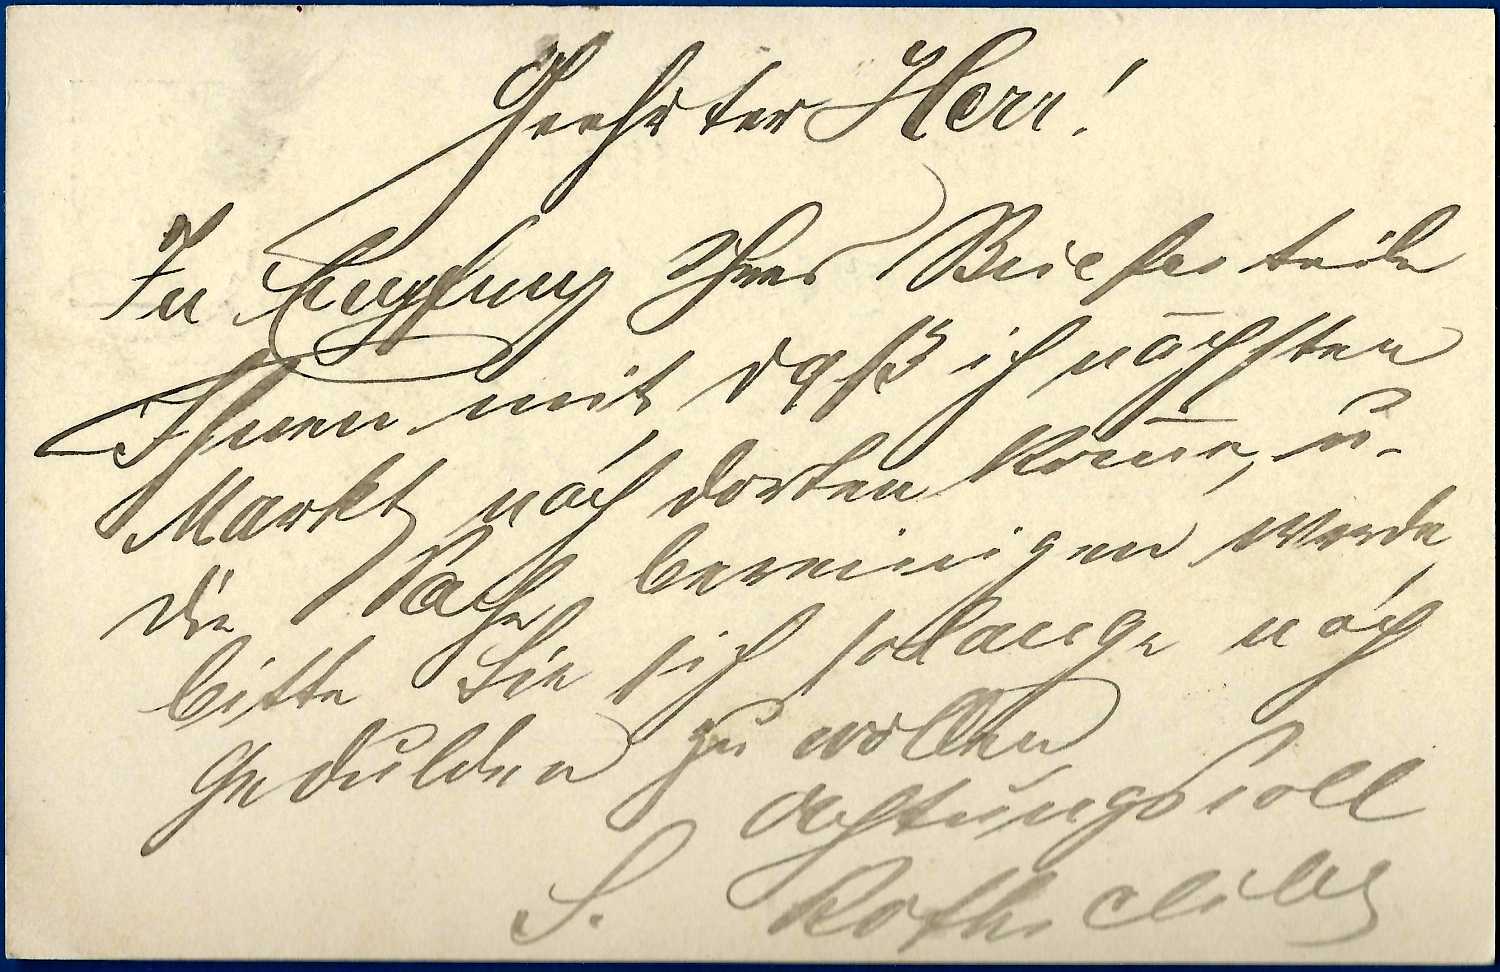 Geehrter Herr!
In Empfang Ihres Briefes teile
Ihnen mit daß ich nächsten
Markt nach dorten kom̄e, u.
die Sache bereinigen werde,
bitte Sie sich solange noch
gedulden zu wollen
Achtungsvoll
S.